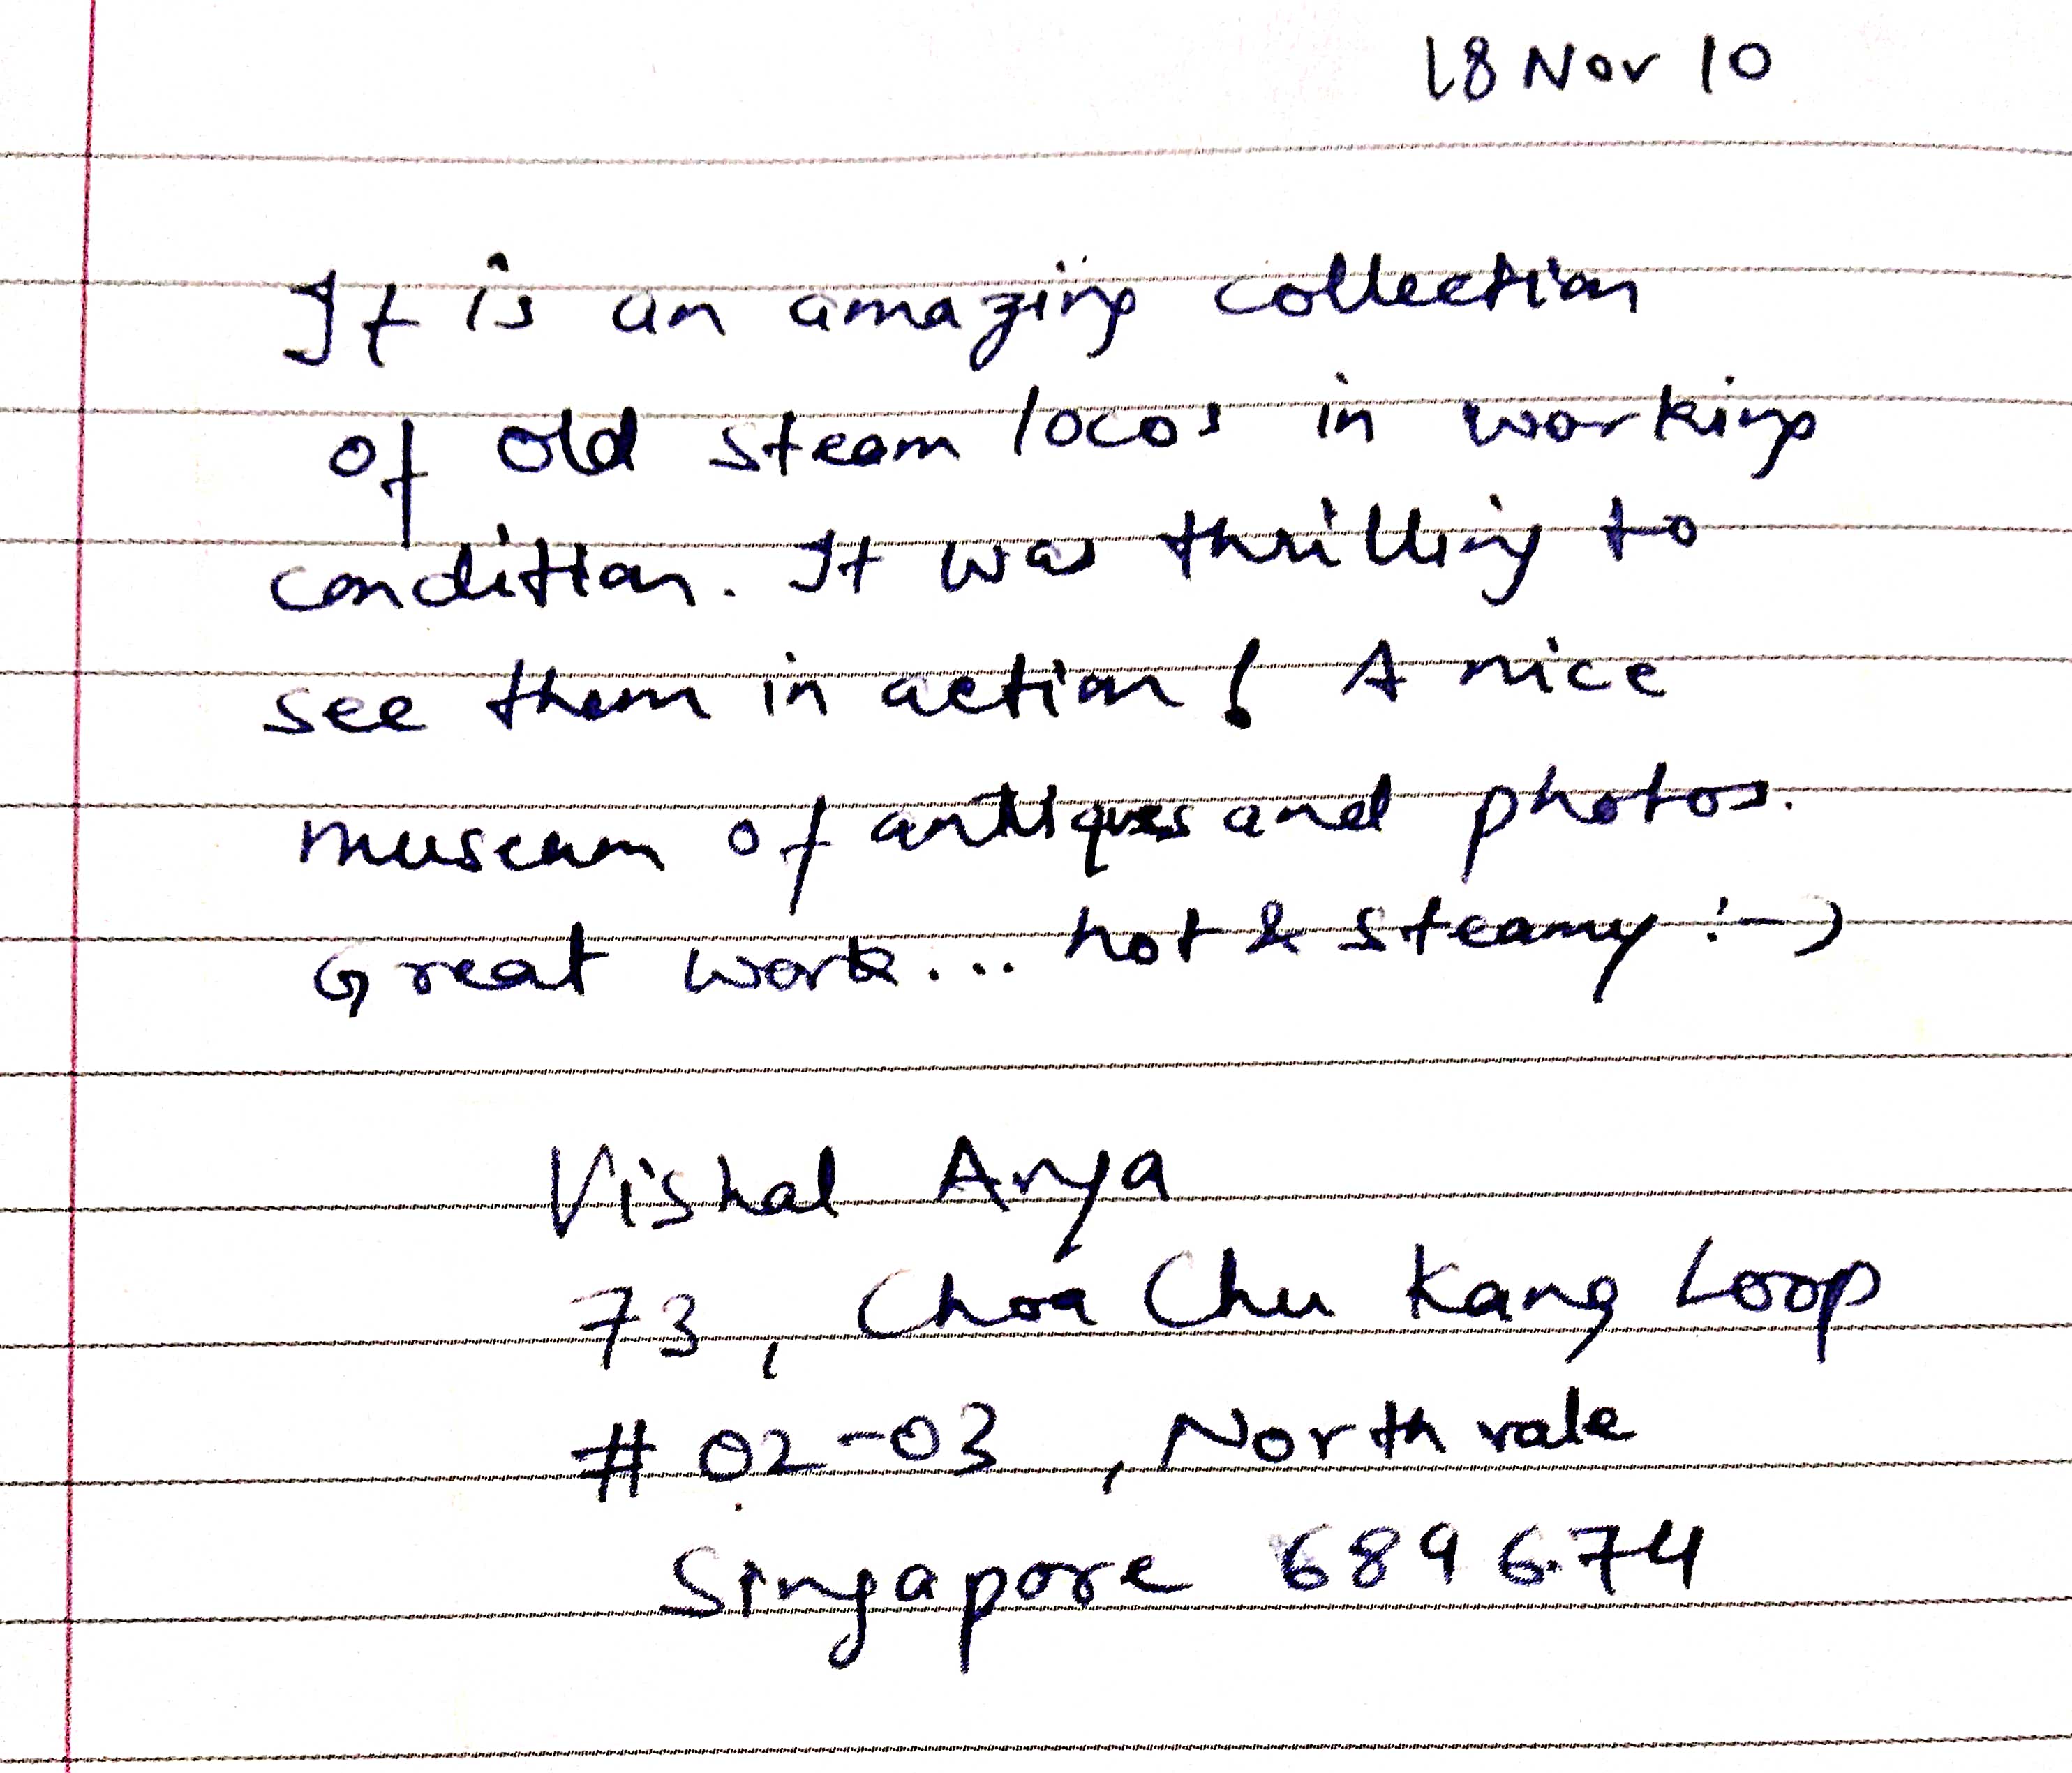 18 Nov 10
It is an amazing collection
of old steam locos in working
condition. It was thrilling to
see them in action! A nice
museum of antiques and photos.
Great work... hot & steamy :-)
Vishal Arya
73, Choa Chu Kang Loop
# 02-03, Northvale
Singapore 689674